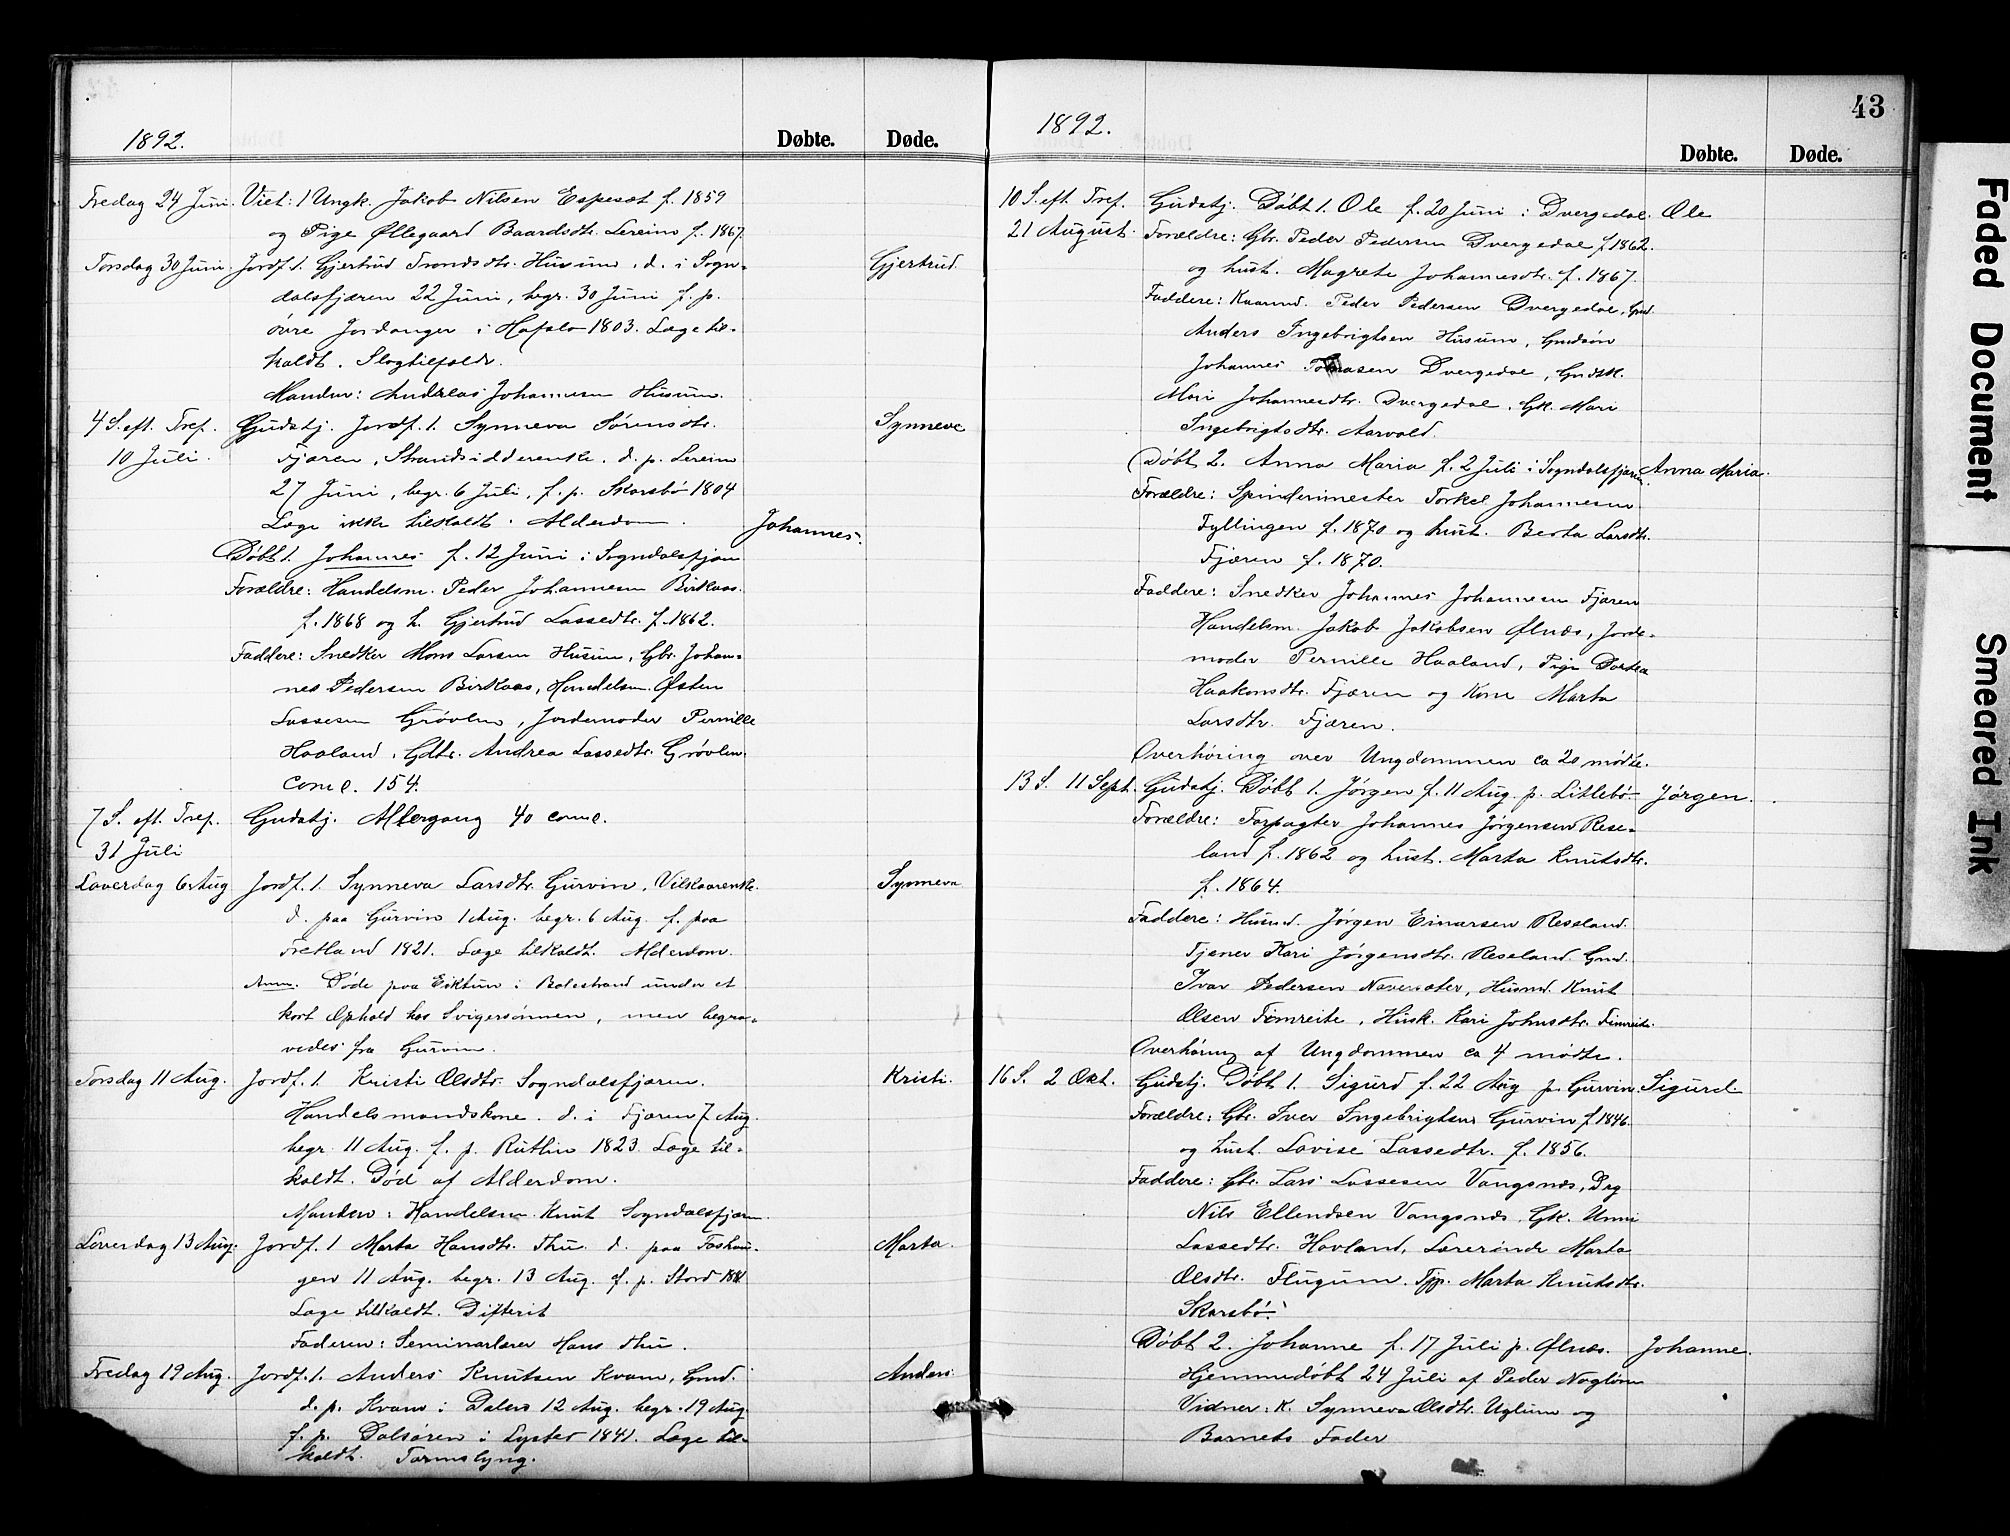 1892.
Døbte.
Døde.
Fredag 24 Juni. Viet: 1 Ungk. Jakob Nilsen Espeset f. 1859
og Pige Øllegaard Baardsdtr. Lereim f. 1867.
Torsdag 30 Juni. Jordf. 1. Gjertrud Trondsdtr. Husum, d. i Sogn- Gjertrud.
dalsfjæren 22 Juni, begr. 30 Juni f. p.
övre Jordanger i Hafslo 1803. Læge til-
kaldt. Slagtilfælde.
Manden: Andreas Johannesen Husum.
4 S. eft. Tref. Gudstj. Jordf. 1. Synneva Sörensdtr. Synneve
10 Juli. Fjæren, Strandsidderenke. d. p. Lereim
27 Juni, begr. 6 Juli, f. p. Skarsbö 1804
Læge ikke tilkaldt. Alderdom.
Døbt 1. Johannes f. 12 Juni i Sogndalsfjæren Johannes.
Forældre: Handelsm. Peder Johannesen Birkaas.
f. 1868 og h. Gjertrud Lassedtr. f. 1862.
Faddere: Snedker Mons Larsen Husum, Gbr. Johan-
nes Pedersen Birkaas, Handelsm. Østen
Lassesen Grövlen, Jordemoder Pernille
Haaland, Gdtr. Andrea Lassedtr. Grövlen.
Come. 154.
7 S. eft. Tref. Gudstj. Altergang 40 come.
31 Juli
Løverdag 6 Aug Jordf. 1. Synneva Larsdtr. Gurvin, Vilkaarenke. Synneva
d. paa Gurvin 1 Aug. begr. 6 Aug. f. paa
Fretland 1821. Læge tilkaldt. Alderdom.
Anm. Døde paa Eiktun i Balestrand under et
kort Ophold hos Svigersönnen, men begra-
vedes fra Gurvin.
Torsdag 11 Aug. Jordf. 1 Kristi Olsdtr. Sogndalsfjæren. Kristi.
Handelsmandskone. d. i Fjæren 7 Aug.
begr. 11 Aug. f. p. Rutlin 1823. Læge til-
kaldt. Død af Alderdom.
Manden: Handelsm. Knut Sogndalsfjæren.
Løverdag 13 Aug. Jordf. 1 Marta Hansdtr. Thu. d. paa Foshau- Marta.
gen 11 Aug. begr. 13 Aug. f. p. Stord 1881
Læge tilkaldt. Difterit
Faderen: Seminarlærer Hans Thu.
Fredag 19 Aug. Jordf. 1. Anders Knutsen Kvam, Gmd. Anders
d. p. Kvam i Dalen 12 Aug. begr. 19 Aug.
f. p. Dalsören i Lyster 1841. Læge til-
kaldt. Tarmslyng.
1892.
43
Døbte.
Døde.
10 S. eft Tref. Gudstj. Døbt 1. Ole f. 20 Juni i Dvergedal. Ole
21 August. Forældre: Gbr. Peder Pedersen Dvergedal f 1862.
og hust. Magrete Johannesdtr. f. 1867.
Faddere: Kaarmd. Peder Pedersen Dvergedal, Gmd.
Anders Ingebrigtsen Husum, Gmdsön
Johannes Tomasen Dvergedal, Gmdsk.
Mari Johannesdtr. Dvergedal, Gk. Mari
Ingebrigtsdtr. Aarvold.
Døbt 2. Anna Maria f. 2 Juli i Sogndalsfjæren. Anna Maria.
Forældre: Spinderimester Torkel Johannesen
Fyllingen f. 1870 og hust. Berta Larsdtr.
Fjæren f. 1870.
Faddere: Snedker Johannes Johannesen Fjæren
Handelsm. Jakob Jakobsen Ølnæs, Jorde-
moder Pernille Haaland, Pige Dortea
Haakonsdtr. Fjæren og Kone Marta
Larsdtr. Fjæren.
Overhöring over Ungdommen ca 20 mödte.
13 S. 11 Sept. Gudstj. Döbt 1. Jörgen f. 11 Aug. p. Litlebö. Jörgen.
Forældre: Forpagter Johannes Jörgensen Rese-
land f. 1862 og hust. Marta Knutsdtr.
f. 1864.
Faddere: Husmd. Jörgen Einarsen Reseland.
Tjener Kari Jörgensdtr. Reseland. Gmd.
Ivar Pedersen Navarsæter, Husmd. Knut
Olsen Fimreite, Husk. Kari Johnsdtr. Fimreite.
Overhöring af Ungdommen ca 4 mödte.
16 S. 2 Okt. Gudstj. Døbt 1. Sigurd f. 22 Aug p. Gurvin. Sigurd.
Forældre: Gbr. Iver Ingebrigtsen Gurvin f 1846.
og hust. Lovise Lassedtr. f. 1856.
Faddere: Gbr. Lars Lassesen Vangsnæs, Drg
Nils Ellendsen Vangsnæs, Gk. Unni
Lassedtr. Hovland, Lærerinde Marta
Olsdtr. Flugum. Tjp. Marta Knutsdtr.
Skarsbö.
Døbt 2. Johanne f. 17 Juli p. Ølnæs. Johanne.
Hjemmedøbt 24 Juli af Peder Nagløren
Vidner: K. Synneva Olsdtr. Uglum og
Barnets Fader
Faded Document
Smeared Ink